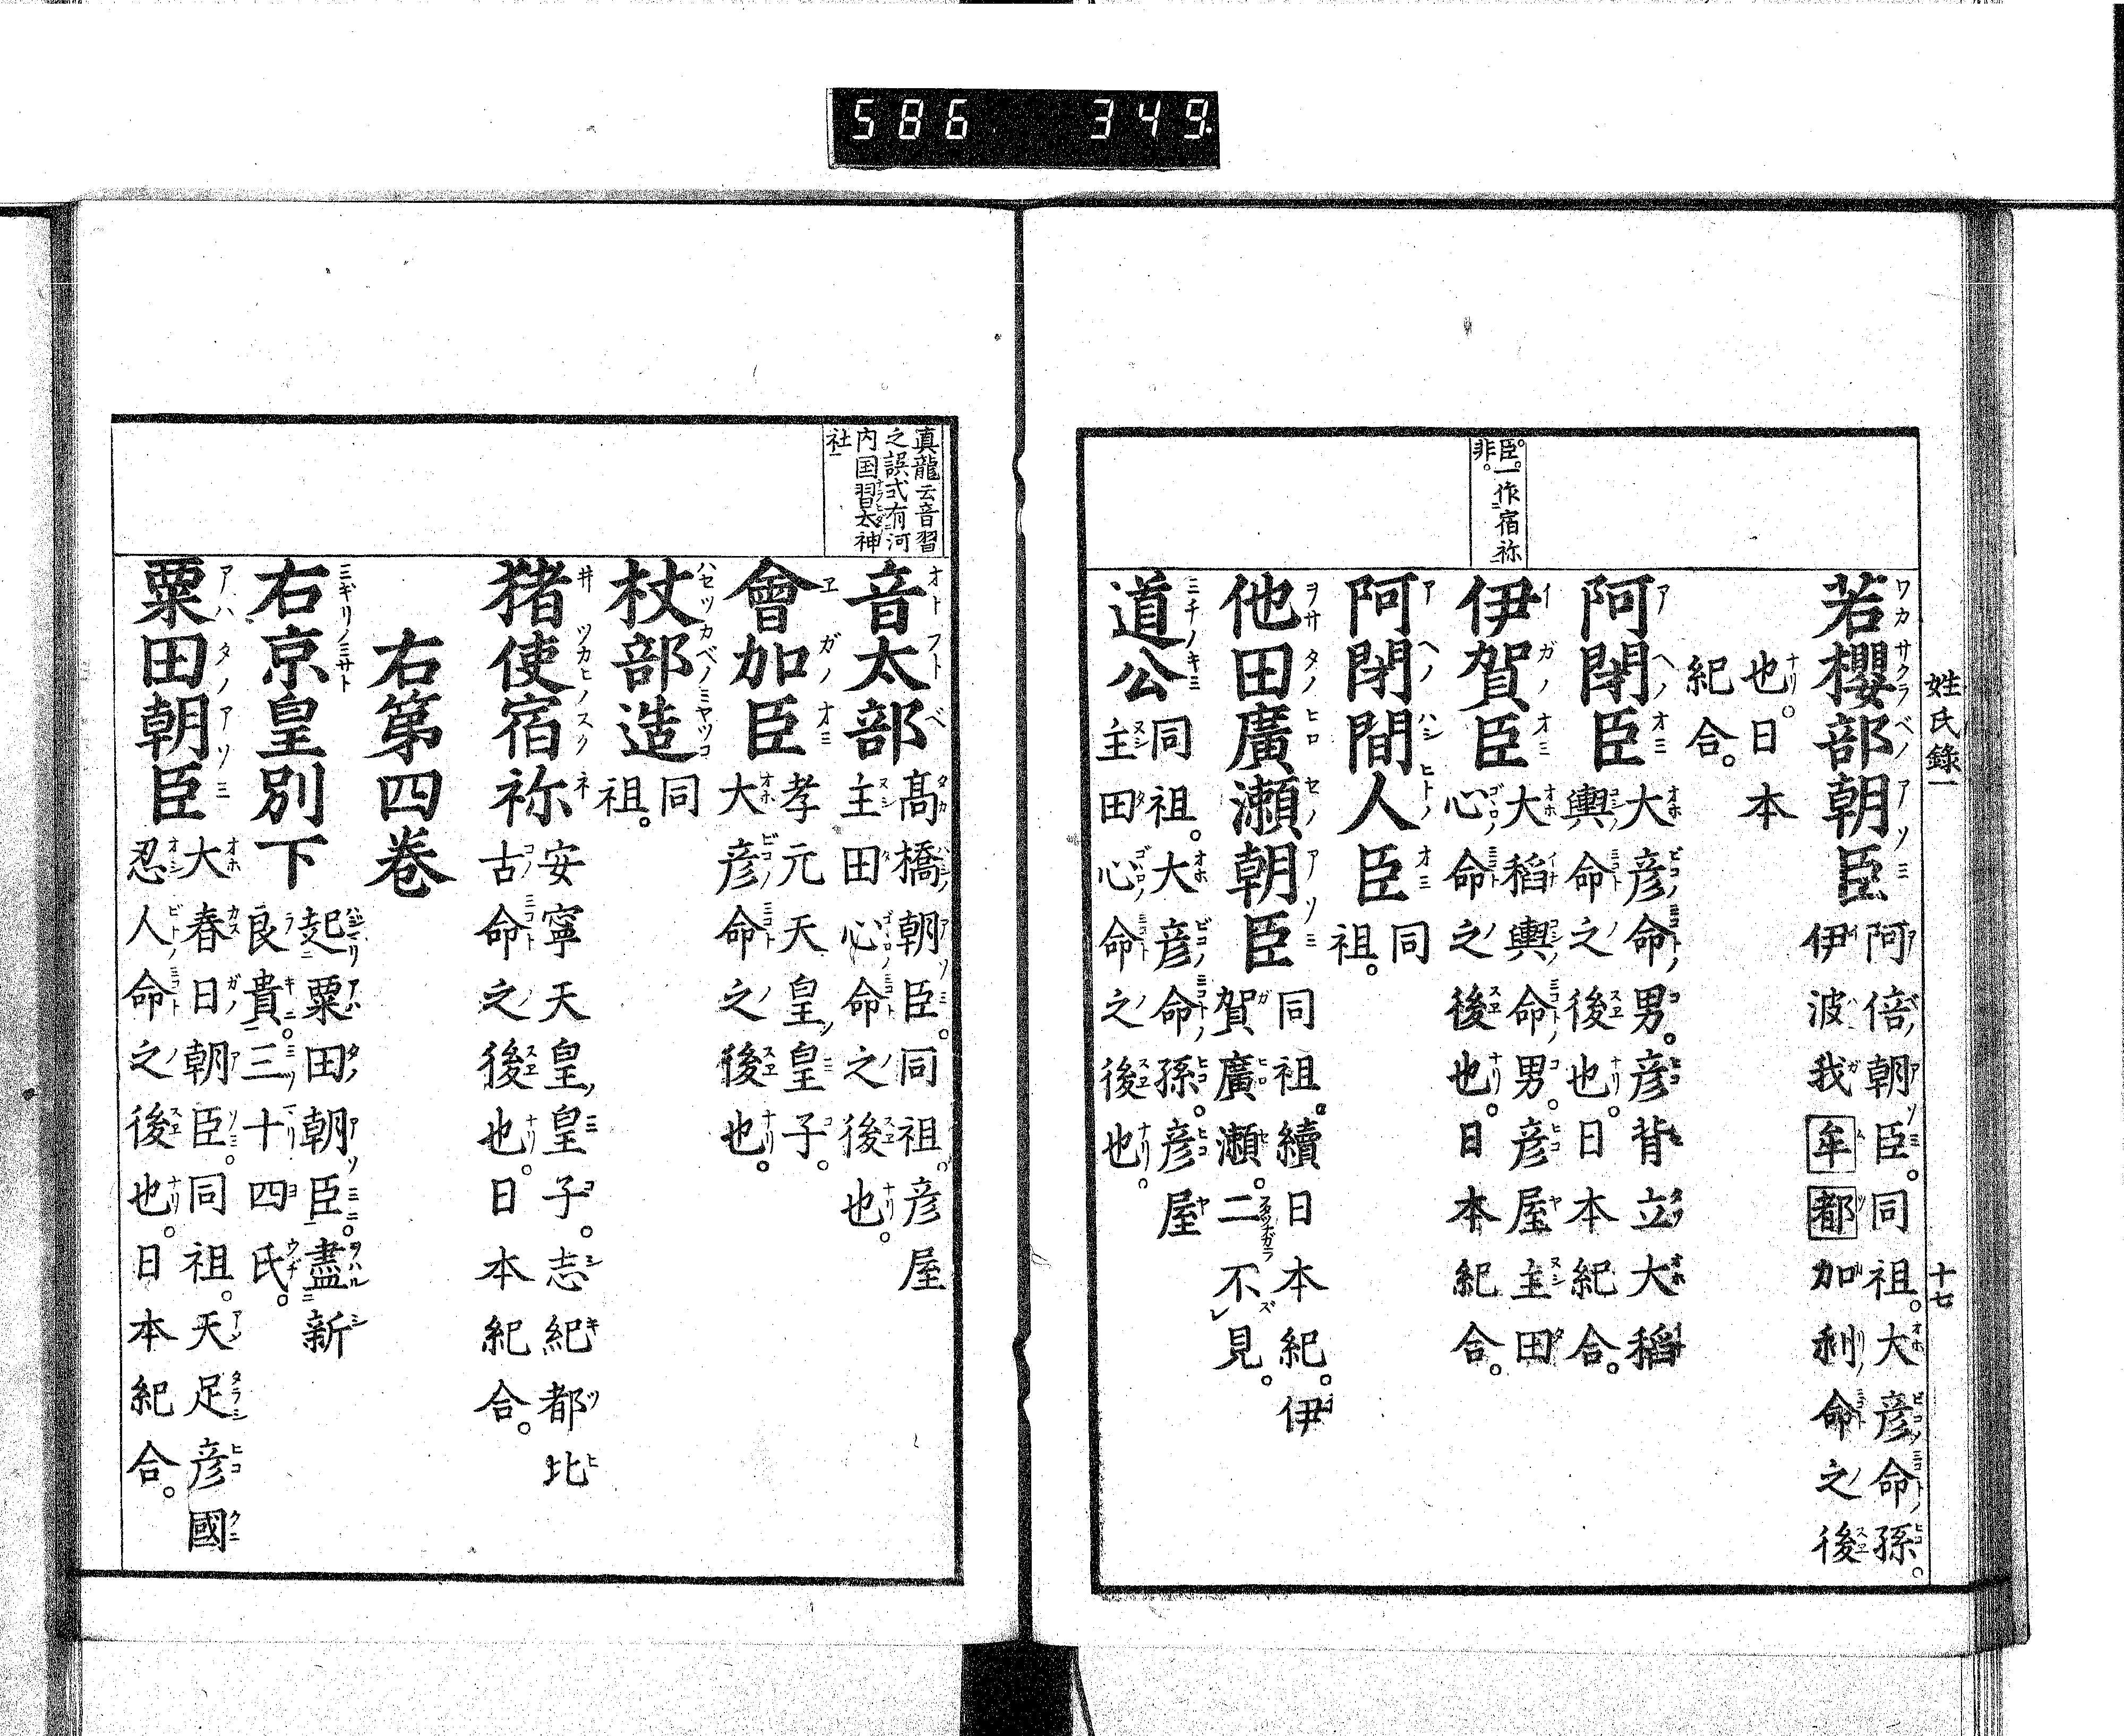 586 349.
姓氏錄一 十七
臣。一作宿祢
非。
若櫻部朝臣
阿倍朝臣。同祖。大彦命孫。
伊波我牟都加利命之後
也。日本
紀合。
阿閉臣
大彦命男。彦背立大稻
輿命之後也。日本紀合。
伊賀臣
大稻輿命男。彦屋主田
心命之後也。日本紀合。
阿閉間人臣
同
祖。
他田廣瀬朝臣
同祖。續日本紀。伊
賀廣瀬。二不見。
道公
同祖。大彦命孫。彦屋
主田心命之後也。
真龍云音習
之誤式有河
内国習太神
社
音太部
髙橋朝臣。同祖。彦屋
主田心命之後也。
會加臣
孝元天皇皇子。
大彦命之後也。
杖部造
同
祖。
猪使宿祢
安寧天皇皇子。志紀都比
古命之後也。日本紀合。
右第四巻
右京皇別下
起粟田朝臣。盡新
良貴。三十四氏。
粟田朝臣
大春日朝臣。同祖。天足彦國
忍人命之後也。日本紀合。